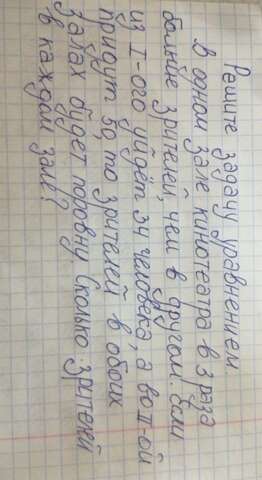 Решите задачу уравнением.
в одном зале кинотеатра в 3 раза
больше зрителей, чем в другом. если
из I-ого уйдёт 34 человека, а во II-ой
придут 50 то зрителей в обоих
залах будет поровну Сколько зрителей
в каждом зале?